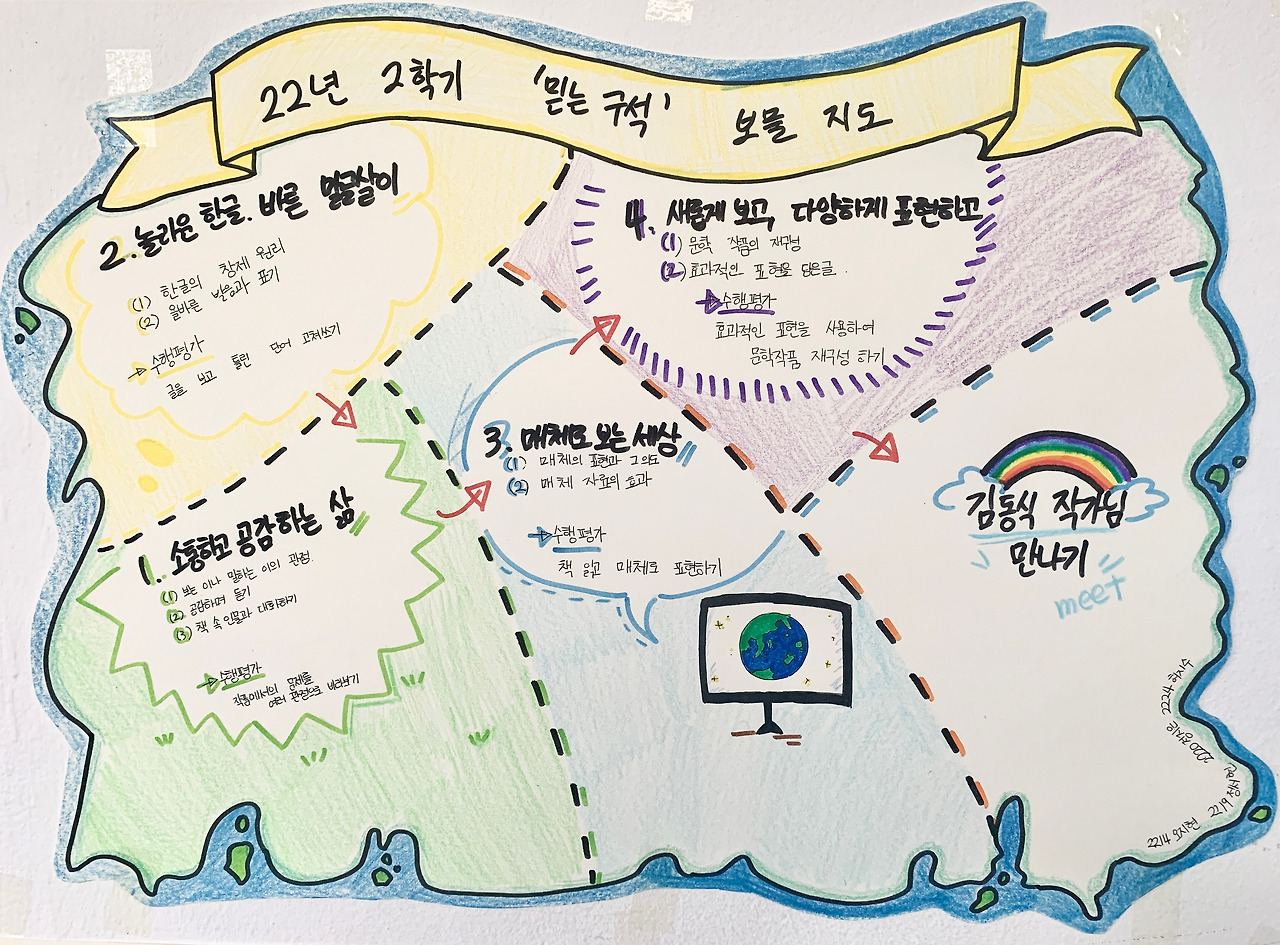 22년 2학기 '믿는 구석' 보물 지도
2. 놀라운 한글, 바른 말글살이
(1) 한글의 창제 원리
(2) 올바른 발음과 표기
수행평가
글을 보고 틀린 단어 고쳐쓰기
4. 새롭게 보고, 다양하게 표현하고
(1) 문학 작품의 재구성
(2) 효과적인 표현을 담은글.
수행평가
효과적인 표현을 사용하여
문학작품 재구성 하기
3. 매체로 보는 세상
(1) 매체의 표현과 그 의도
(2) 매체 자료의 효과
수행평가
책 읽고 매체로 표현하기
1. 소통하고 공감하는 삶
(1) 보는 이나 말하는 이의 관점.
(2) 공감하며 듣기
(3) 책 속 인물과 대화하기
수행평가
작품에서의 문제를
여러 관점으로 바라보기
김동식 작가님
만나기
meet
2214 오지현 2219 정서인 2220 정지윤 2224 하지수